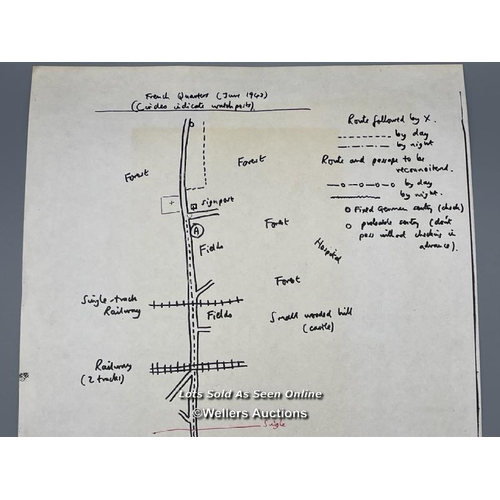 French Quarters (June 1943)
(Circles indicate watchposts)
Route followed by X.
by day
by night
Route and passage to be
reconnoitered.
by day
by night.
Fixed German sentry (check)
probable sentry (don't
pass without checking in
advance).
Forest
Forest
+
signpost
A
Forest
Fields
Hospital
Forest
Single-track
Railway
Fields
Small wooded hill
(castle)
Railway
(2 tracks)
Lots Sold As Seen Online
©Wellers Auctions
Single